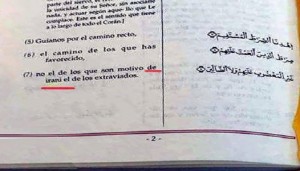 parte del siervo, el
la veracidad de su Señor, sin asociarle
nada, y actuar según aquello que Le
complace. Este es el sentido que tiene
a lo largo de todo el Corán.]
(5) Guíanos por el camino recto,
(6) el camino de los que has
favorecido,
(7) no el de los que son motivo de
irani el de los extraviados.
اهدنا الصراط المستقيم
صراط الذين أنعمت عليهم
غير المغضوب عليهم ولا الضالين
- 2 -